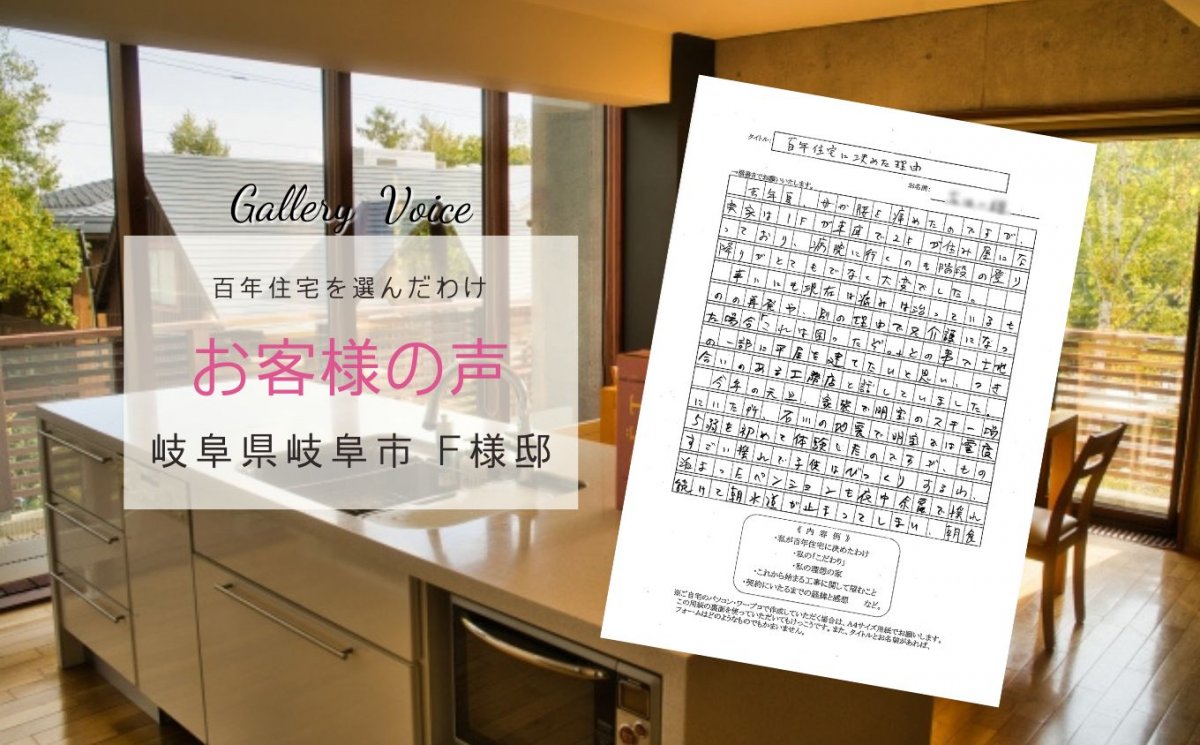 Gallery Voice
百年住宅を選んだわけ
お客様の声
岐阜県岐阜市 F様邸
タイトル: 百年住宅に決めた理由
→横書きでお願いいたします。 お名前:
去年夏、母が腰を痛めたのですが、
実家は1Fが車庫で2Fが住み屋にな
っており、病院に行くのも階段の登り
降りがとてもでなく大変でした。
幸いにも現在は痛みは治っているも
のの再発や、別の理由で又介護になっ
た場合「これは困ったぞ。」との事で土地
の一部に平屋を建てたいと思い、つき
合いのある工務店と話していました。
今年の元旦、家族で明宝のスキー場
にいた所、石川の地震で明宝では震度
5弱を初めて体験したのですが、もの
すごい揺れで子供はびっくりするわ、
泊まったペンションも夜中余震で揺れ
続けて朝水道が止まってしまい、朝食
《内容例》
・私が百年住宅に決めたわけ
・私の「こだわり」
・私の理想の家
・これから始まる工事に関して望むこと
・契約にいたるまでの経緯と感想 など。
※ご自宅のパソコン・ワープロで作成していただく場合は、A4サイズ用紙でお願いします。
この用紙の裏面を使っていただいてもけっこうです。また、タイトルとお名前があれば、
フォームはどのようなものでもかまいません。